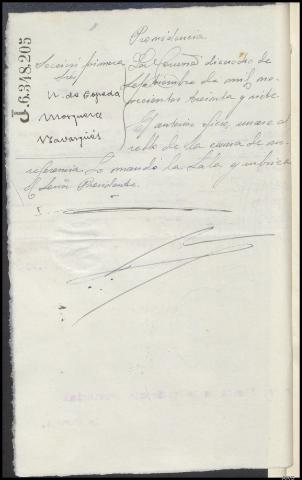 Providencia
J.6.348.205
Sección primera
Sres
N. de Cepeda
Mosquera
Navagües
La Coruña dieciocho de
Septiembre de mil no-
vecientos treinta y siete.
El anterior oficio, únase al
rollo de la causa de su
referencia. Lo mandó la Sala y rubrica
el Señor Presidente.